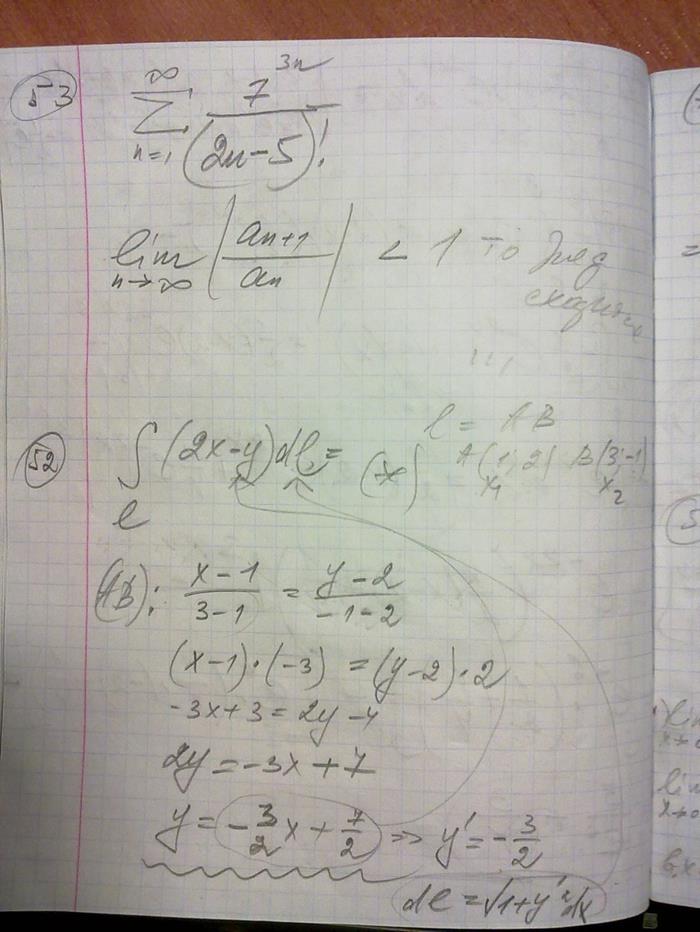 53 ∞ ∑ n=1 7^{3n} / (2n-5)!
lim n→∞ |an+1 / an| < 1 то ряд
сходится
52 ∫ℓ (2x-y)dℓ = (*) ℓ = AB
A(1; 2) B(3; -1)
x₁ x₂
(AB): (x-1)/(3-1) = (y-2)/(-1-2)
(x-1)·(-3) = (y-2)·2
-3x+3=2y-4
2y=-3x+7
y=-3/2 x+7/2 => y'=-3/2
dℓ=√(1+y'²)dx
lim
x→0
lim
x→0